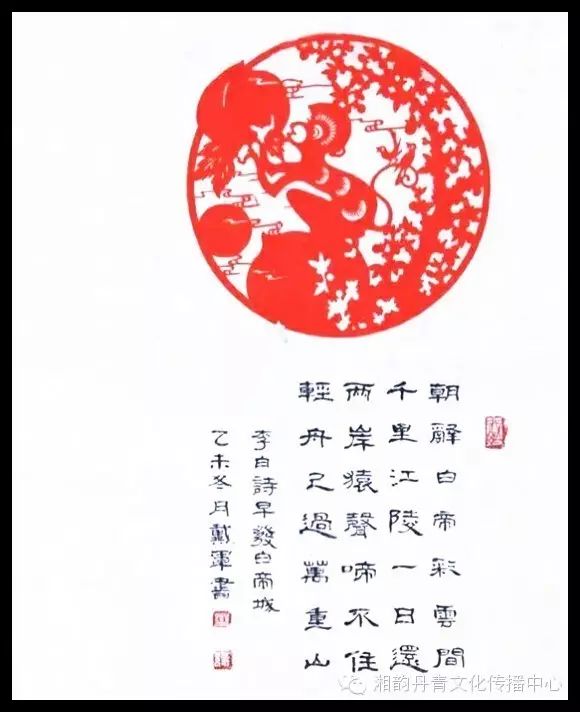 朝辭白帝彩雲間
千里江陵一日還
兩岸猿聲啼不住
輕舟已過萬重山
李白詩早發白帝城
乙未冬月戴軍書
湘韵丹青文化传播中心